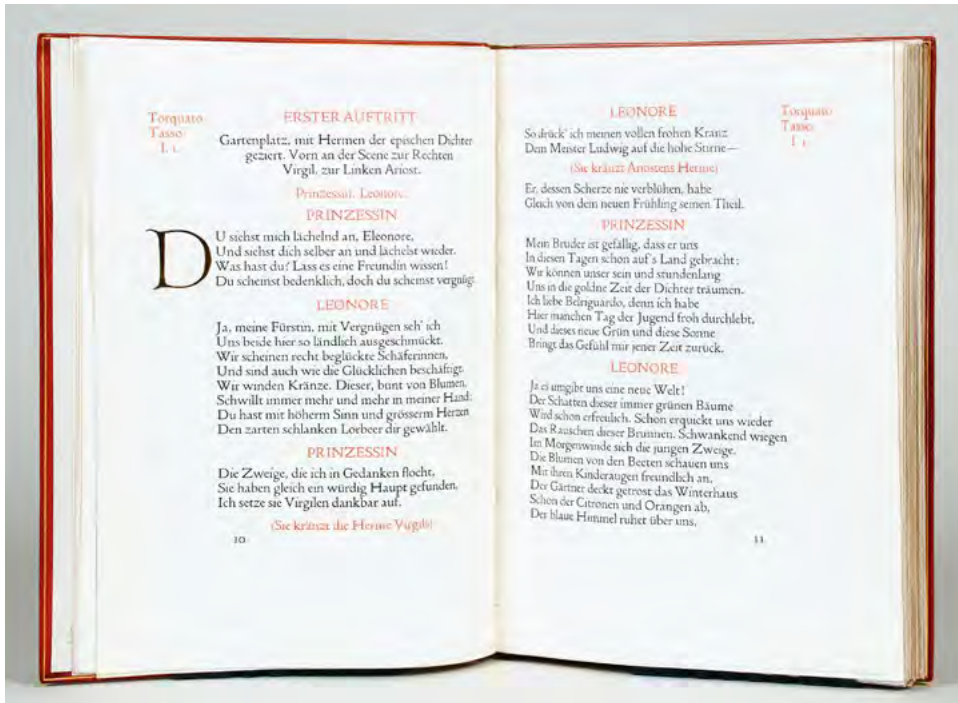 Torquato
Tasso
I. 1.
ERSTER AUFTRITT
Gartenplatz, mit Hermen der epischen Dichter
geziert. Vorn an der Scene zur Rechten
Virgil, zur Linken Ariost.
Prinzessin. Leonore.
PRINZESSIN
DU siehst mich lächelnd an, Eleonore,
Und siehst dich selber an und lächelst wieder.
Was hast du? Lass es eine Freundin wissen!
Du scheinst bedenklich, doch du scheinst vergnügt.
LEONORE
Ja, meine Fürstin, mit Vergnügen seh' ich
Uns beide hier so ländlich ausgeschmückt.
Wir scheinen recht beglückte Schäferinnen,
Und sind auch wie die Glücklichen beschäftigt.
Wir winden Kränze. Dieser, bunt von Blumen,
Schwillt immer mehr und mehr in meiner Hand;
Du hast mit höherm Sinn und grösserm Herzen
Den zarten schlanken Lorbeer dir gewählt.
PRINZESSIN
Die Zweige, die ich in Gedanken flocht,
Sie haben gleich ein würdig Haupt gefunden,
Ich setze sie Virgilen dankbar auf.
(Sie kränzt die Herme Virgils)
10
Torquato
Tasso
I. 1.
LEONORE
So drück' ich meinen vollen frohen Kranz
Dem Meister Ludwig auf die hohe Stirne—
(Sie kränzt Ariostens Herme)
Er, dessen Scherze nie verblühen, habe
Gleich von dem neuen Frühling seinen Theil.
PRINZESSIN
Mein Bruder ist gefällig, dass er uns
In diesen Tagen schon auf's Land gebracht;
Wir können unser sein und stundenlang
Uns in die goldne Zeit der Dichter träumen.
Ich liebe Belriguardo, denn ich habe
Hier manchen Tag der Jugend froh durchlebt,
Und dieses neue Grün und diese Sonne
Bringt das Gefühl mir jener Zeit zurück.
LEONORE
Ja es umgibt uns eine neue Welt!
Der Schatten dieser immer grünen Bäume
Wird schon erfreulich. Schon erquickt uns wieder
Das Rauschen dieser Brunnen. Schwankend wiegen
Im Morgenwinde sich die jungen Zweige.
Die Blumen von den Beeten schauen uns
Mit ihren Kinderaugen freundlich an.
Der Gärtner deckt getrost das Winterhaus
Schon der Citronen und Orangen ab,
Der blaue Himmel ruhet über uns,
11